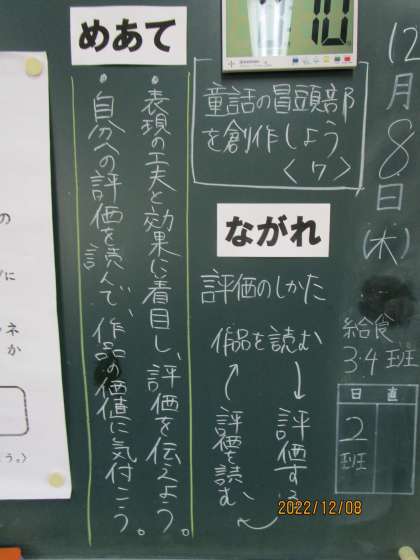 12月8日(木)
給食
3.4班
日直
2班
童話の冒頭部
を創作しよう
<7>
ながれ
評価のしかた
作品を読む
↓
評価する
評価を読む
↑
めあて
・表現の工夫と効果に着目し、評価を伝えよう。
・自分への評価を読んで、作品の価値に気付こう。
10
の
に
ネ
か
う。)
2022/12/08